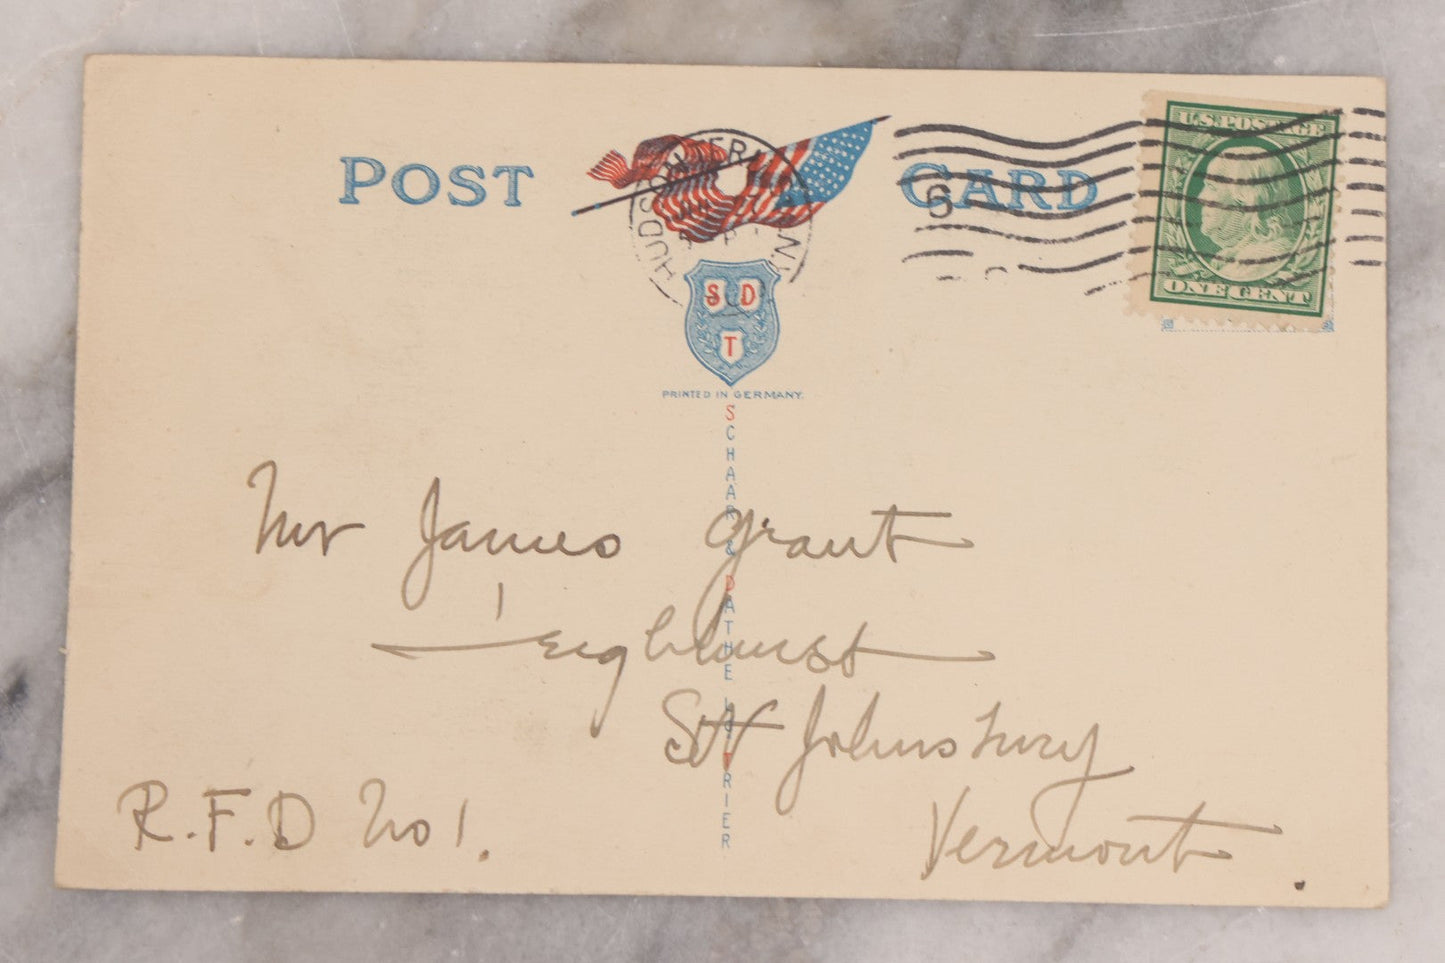 POST CARD
HUDSON TERMINAL
N.Y.
6
U.S. POSTAGE
ONE CENT
S D
T
PRINTED IN GERMANY.
SCHAAR & DATHE
TRIER
Mr James Grant
St Johnsbury
Vermont
R.F.D No 1.